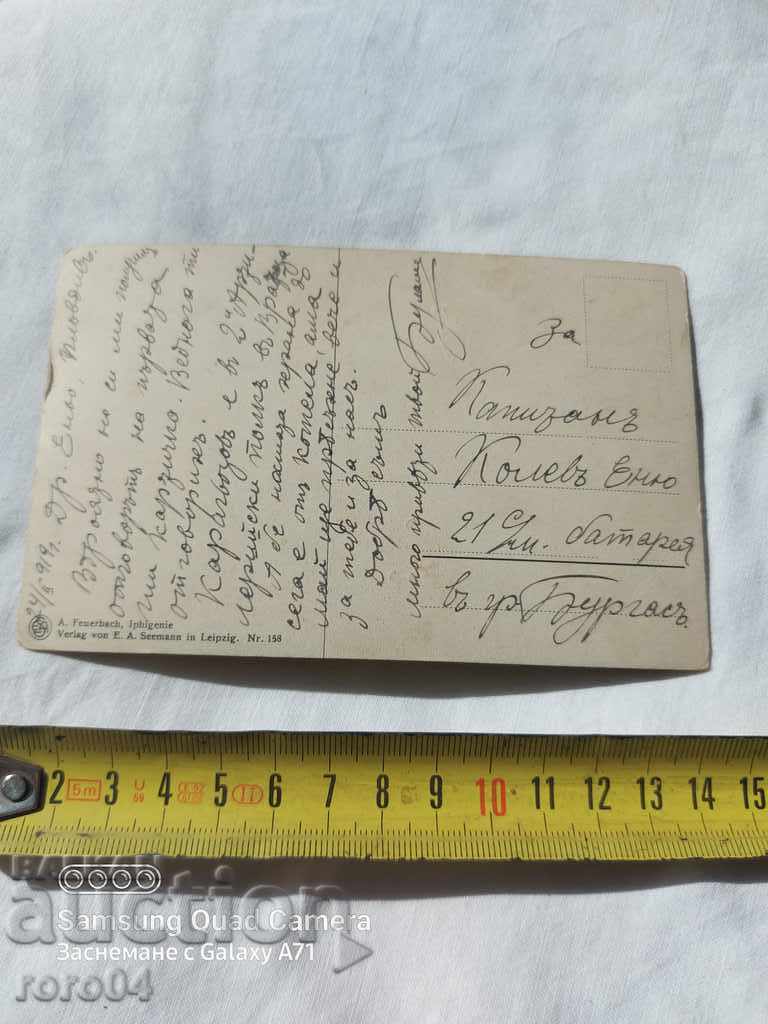 24/II 919 г. Др. Еню, Пловдивъ.
Вѣроядно не си ми получилъ
отговорътъ на първата
ти картичка. Веднага ти
отговорихъ.
Карагьозовъ е в 2й Арти-
лерийски полкъ въ Враца
А бе нашата храна до
сега е отъ котела, ама
май ще прѣстане вече и
за тебе и за насъ.
Добрѣ съмъ
много привѣти твой
За
Капитанъ
Колевъ Еню
21 с/м. батарея
въ гр. Бургасъ.
A. Feuerbach, Iphigenie
Verlag von E. A. Seemann in Leipzig. Nr. 158
2 5m 3 4 5 II 6 7 8 9 10 11 12 13 14 15
auction
Samsung Quad Camera
Заснемане с Galaxy A71
roro04